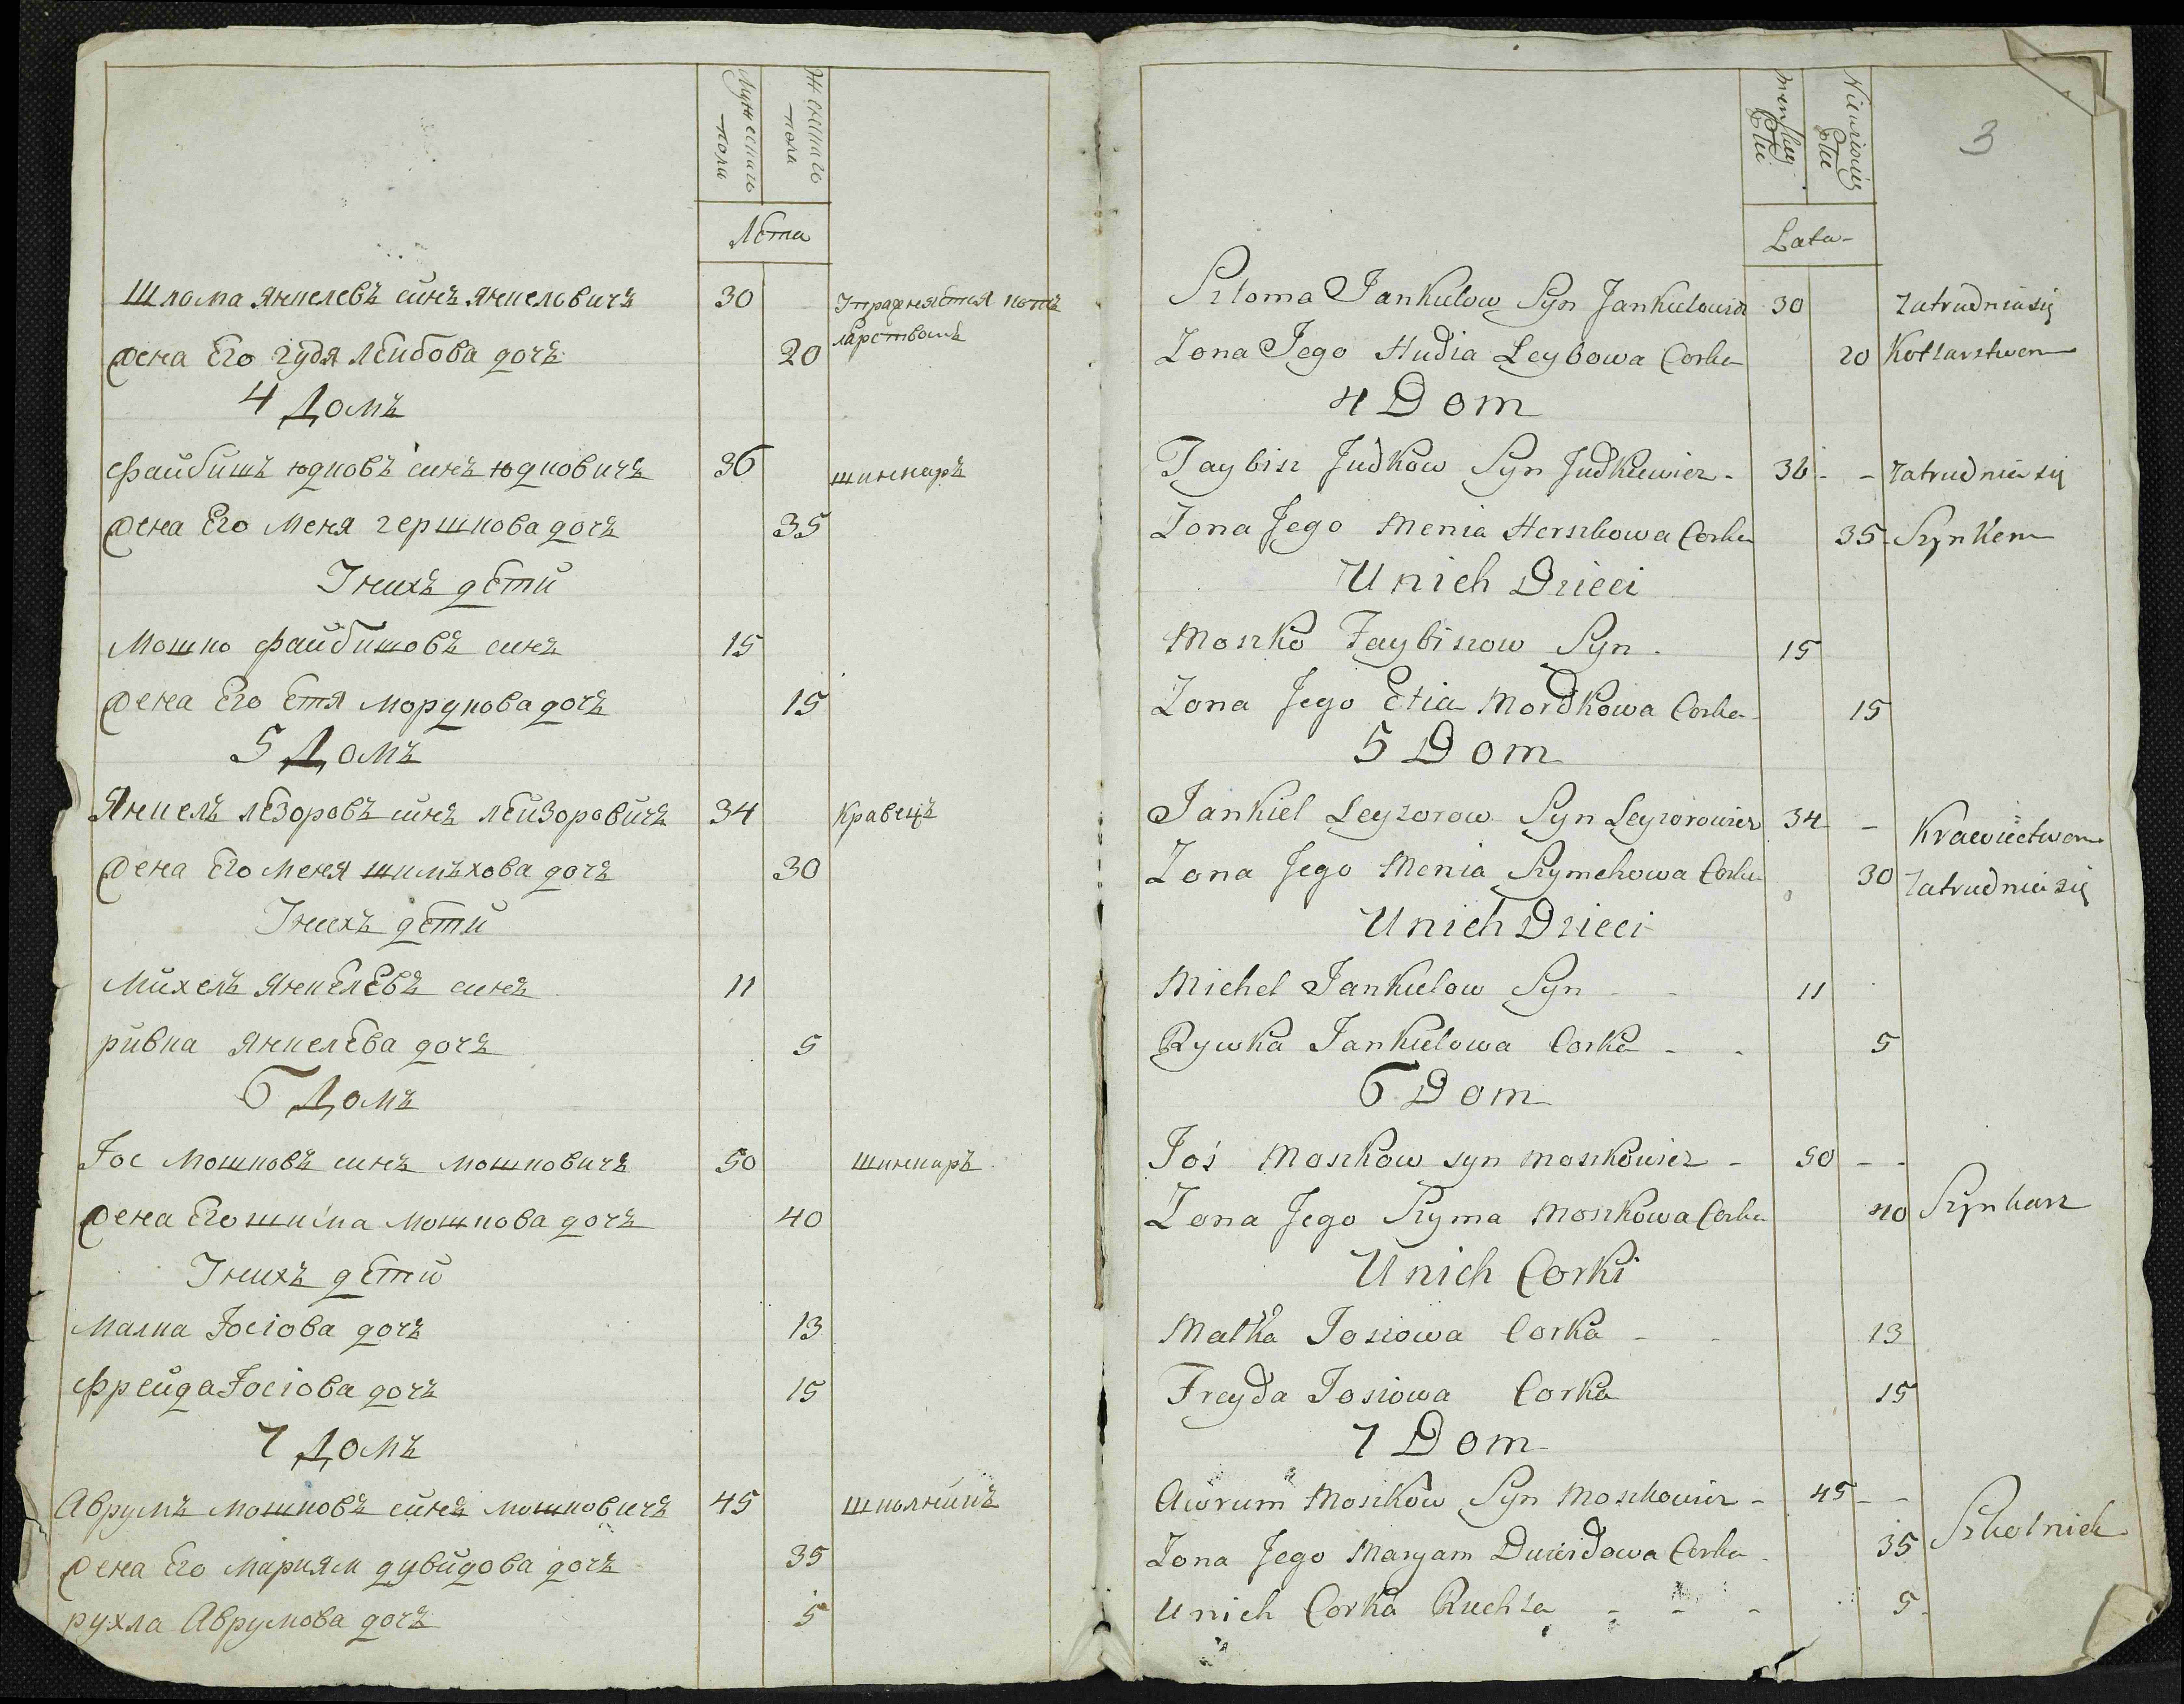 Мужескаго
пола
Женскаго
пола
Лѣта
Шлома Янкелевъ синъ Янкеловичъ 30 Упражняется котъ
ларствомъ
Жена Его гудя Леибова дочъ 20
4 Домъ
Файбишъ юдковъ синъ юдковичъ 36 шинкаръ
Жена Его Меня гершкова дочъ 35
Унихъ дети
Мошко файбишовъ синъ 15
Жена Его Етя мордкова дочъ 15
5 Домъ
Янкель лезоровъ синъ леизоровичъ 34 Кравецъ
Жена Его Меня шимъхова дочъ 30
Унихъ дети
Михелъ Янкелевъ синъ 11
ривка Янкелева дочъ 5
6 Домъ
Iос мошковъ синъ мошковичъ 50 шинкаръ
Жена Его мошкова дочъ 40
Унихъ дети
Малка Iосiова дочъ 13
Фрейда Iосiова дочъ 15
7 Домъ
Аврумъ мошковъ синъ мошковичъ 45 школникъ
Жена Его Мариям дувидова дочъ 35
рухла Аврумова дочъ 5
3
Płci
Płci
Lata
Szloma Jankielow Syn Jankielowicz 30 zatrudnia się
Zona Jego Hudia Leybowa Corka 20 Kotlarstwem
4 Dom
Faybisz Judkow Syn Judkiewicz 36 zatrudnia się
Zona Jego Menia Herszkowa Corka 35 Szynkem
Unich Dzieci
Moszko Faybiszow Syn 15
Zona Jego Etia Mordkowa Corka 15
5 Dom
Jankiel Leyzorow Syn Leyzorowicz 34 Krawiectwem
Zona Jego Menia Szymchowa Corka 30 zatrudnia się
Unich Dzieci
Michel Jankielow Syn 11
Rywka Jankielowa Corka 5
6 Dom
Joś Moszkow syn moszkowicz 50
Zona Jego Szyma Moszkowa Corka 40 Szynkarz
Unich Corki
Malka Josiowa Corka 13
Freyda Josiowa Corka 15
7 Dom
Awrum Moszkow Syn Moszkowicz 45
Szkolnik
Zona Jego Maryam Duwidowa Corka 35
Unich Corka Ruchla 5